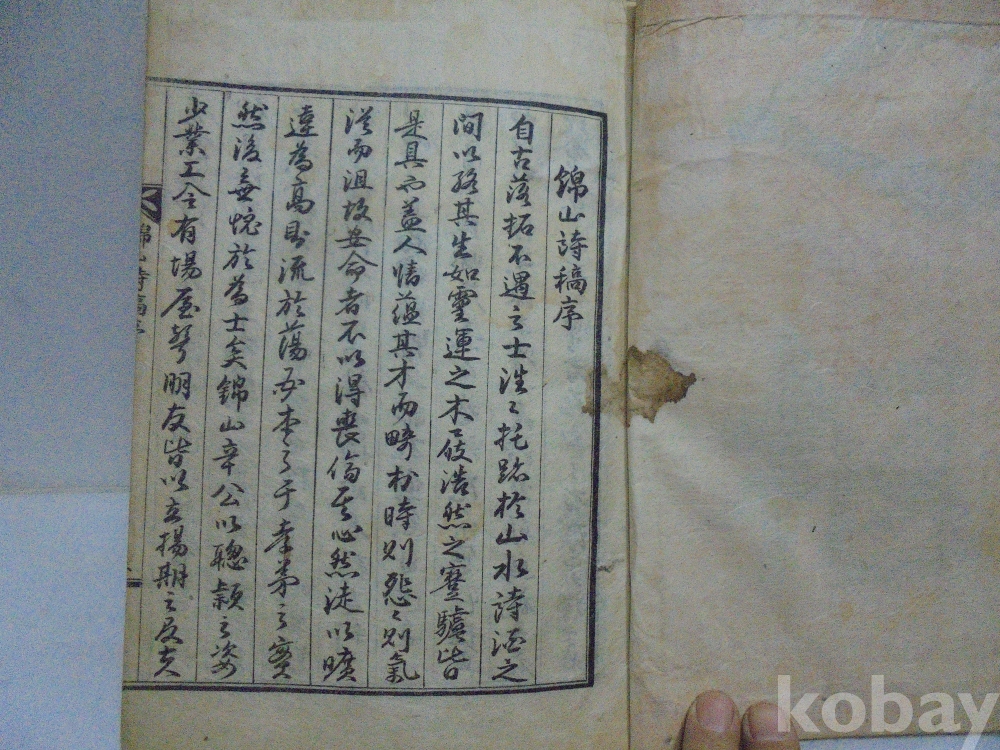 錦山詩稿序
自古落拓不遇之士滔〻托跡於山水詩酒之
間以終其生如靈運之木屐浩然之蹇驢皆
是具也盖人情蘊其才而畸於時則怨〻則氣
從而沮故安命者不以得喪傷其心然徒以曠
達為高則流於蕩必本之于孝弟之實
然後無愧於為士矣錦山辛公以聰穎之姿
少業工令有場屋聲朋友皆以立揚期之及夫
錦山詩稿序
kobay